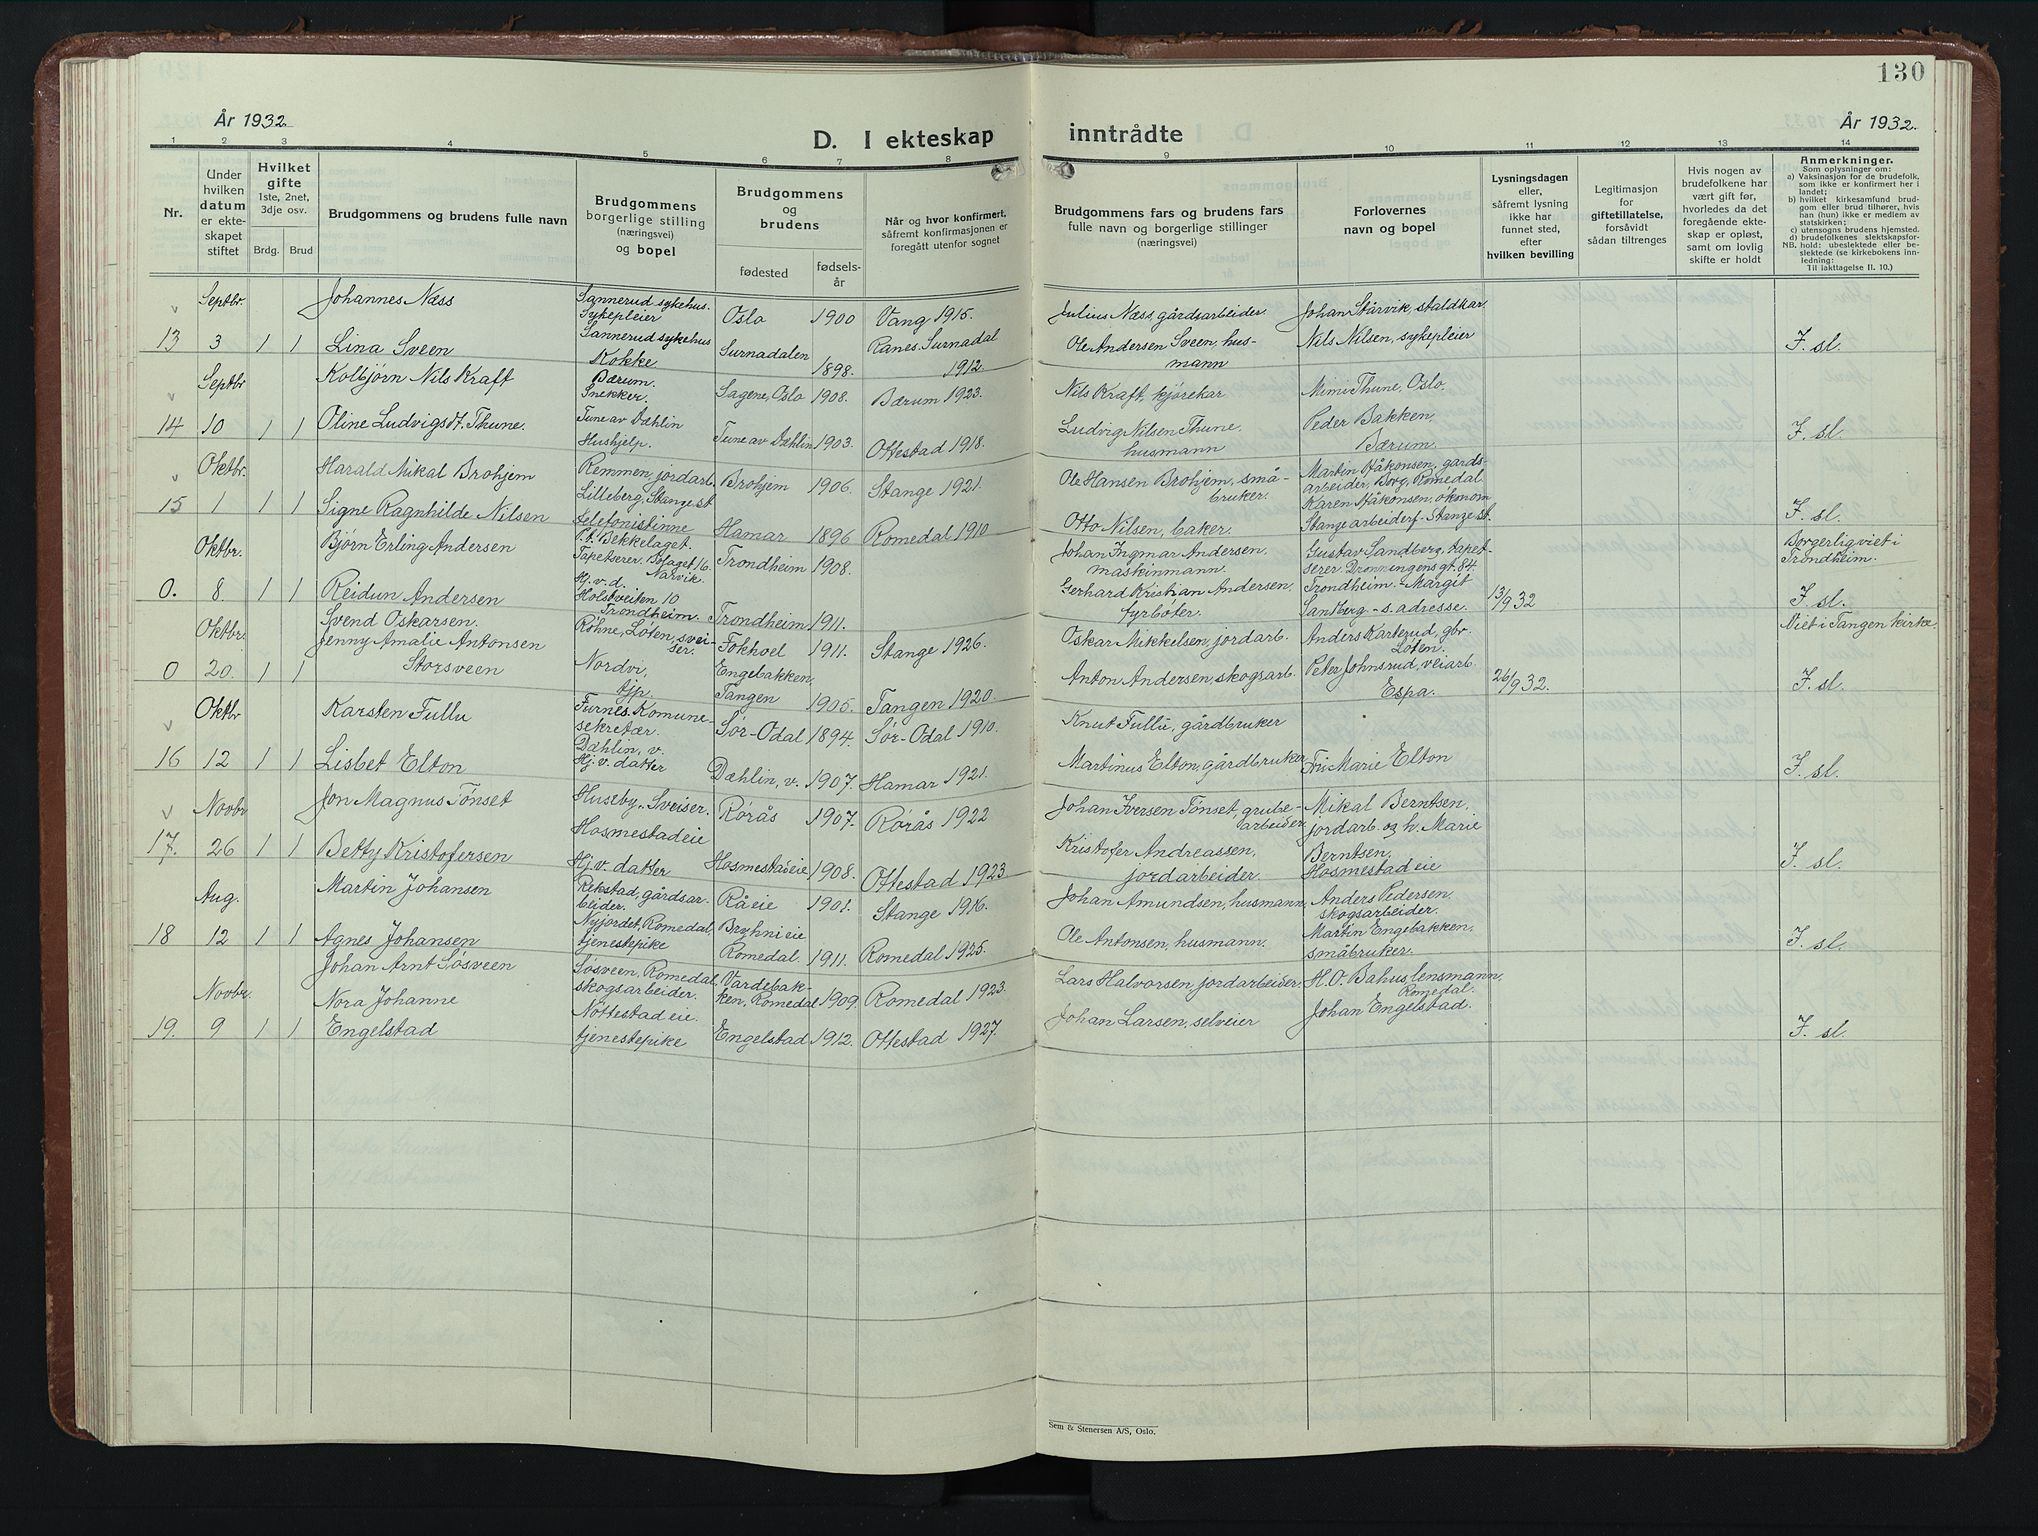 130
År 1932
D. I ekteskap inntrådte
År 1932.
1 2 3 4 5 6 7 8 9 10 11 12 13 14
Nr.
Under hvilken datum er ekteskapet stiftet
Hvilket gifte 1ste, 2net, 3dje osv.
Brdg. Brud
Brudgommens og brudens fulle navn
Brudgommens borgerlige stilling (næringsvei) og bopel
Brudgommens og brudens
fødested
fødselsår
Når og hvor konfirmert, såfremt konfirmasjonen er foregått utenfor sognet
Brudgommens fars og brudens fars fulle navn og borgerlige stillinger (næringsvei)
Forlovernes navn og bopel
Lysningsdagen eller, såfremt lysning ikke har funnet sted, efter hvilken bevilling
Legitimasjon for giftetillatelse, forsåvidt sådan tiltrenges
Hvis nogen av brudefolkene har vært gift før, hvorledes da det foregående ekteskap er opløst, samt om lovlig skifte er holdt
Anmerkninger.
Som oplysninger om:
a) Vaksinasjon for de brudefolk, som ikke er konfirmert her i landet;
b) hvilket kirkesamfund brudgom eller brud tilhører, hvis han (hun) ikke er medlem av statskirken;
c) utensogns brudens hjemsted.
d) brudefolkenes slektskapsforhold: ubeslektede eller beslektede (se kirkebokens innledning:
NB. Til iakttagelse II. 10.)
13 Septbr. 3 1 1
Johannes Næss
Sannerud sykehus. Sykepleier
Oslo 1900 Vang 1915.
Julius Næss, gårdsarbeider.
Johan Stårvik, staldkar
Lina Sveen
Sannerud sykehus Kokke
Surnadalen 1898. Ranes. Surnadal 1912.
Ole Andersen Sveen, husmann
Nils Nilsen, sykepleier
F. sl.
14 Septbr 10 1 1
Kolbjørn Nils Kraft
Bærum. Snekker.
Sagene, Oslo 1908. Bærum 1923.
Nils Kraft, kjørekar
Mimi Thune, Oslo.
Oline Ludvigsdt. Thune.
Tune av Dæhlin Hushjelp.
Tune av Dæhlin 1903. Ottestad 1918.
Ludvig Nilsen Thune, husmann
Peder Bakken, Bærum.
F. sl.
15 Oktbr. 1 1 1
Harald Mikal Brohjem
Remmen, jordarb.
Brohjem 1906. Stange 1921.
Ole Hansen Brohjem, småbruker.
Martin Håkonsen, gårdsarbeider, Borg, Romedal
Signe Ragnhilde Nilsen
Lilleberg, Stange st telefonistinne
Hamar 1896 Romedal 1910
Otto Nilsen, baker
Karen Håkonsen, økonom Stange arbeiderf. Stange st.
F. sl.
0. Oktbr. 8. 1 1
Bjørn Erling Andersen
P.t. Bekkelaget. Tapetserer. Bolaget 16. Narvik.
Trondheim 1908.
Johan Ingmar Andersen, maskinmann.
Gustav Sandberg, tapetserer. Dronningensgt. 84. Trondheim. - Margit Sandberg - s. adresse.
Reidun Andersen
Hj. v. d. Holstveiten 10 Trondheim.
Trondheim 1911.
Gerhard Kristian Andersen, fyrbøter.
13/9 32
Borgerlig viet i Trondheim.
F. sl.
0 Oktbr. 20. 1 1
Svend Oskarsen.
Røhne, Løten, sveiser.
Fokhoel 1911. Stange 1926.
Oskar Mikkelsen, jordarb.
Anders Karterud, gbr. Løten.
Jenny Amalie Antonsen Storsveen
Nordvi, tjp.
Engebakken, Tangen 1905. Tangen 1920.
Anton Andersen, skogsarb.
Peter Johnsrud, veiarb. Espa.
26/9 32.
Viet i Tangen kirke.
F. sl.
16 Oktbr 12 1 1
Karsten Fullu
Furnes. Komunesekretær.
Sør-Odal 1894. Sør-Odal 1910.
Knut Fullu, gårdbruker
Lisbet Elton
Dæhlin, v. Hj. v. datter
Dæhlin, v. 1907. Hamar 1921.
Martinus Elton, gårdbruker
Fru Marie Elton
F. sl.
17. Novbr 26 1 1
Jon Magnus Tønset
Huseby. Sveiser.
Rørås 1907. Rørås 1922
Johan Iversen Tønset, grubearbeider
Mikal Berntsen, jordarb. og h. Marie Berntsen, Hosmestadeie
Betty Kristofersen
Hosmestadeie Hj. v. datter
Hosmestadeie 1908. Ottestad 1923
Kristofer Andreassen, jordarbeider.
F. sl.
18 Aug. 12 1 1
Martin Johansen
Rekstad, gårdsarbeider.
Råeie 1901. Stange 1916.
Johan Amundsen, husmann,
Anders Pedersen, skogsarbeider.
Agnes Johansen
Nyjordet, Romedal, tjenestepike
Bryhnieie Romedal. 1911. Romedal 1925.
Ole Antonsen, husmann.
Martin Engebakken, småbruker.
F. sl.
19. Novbr. 9 1 1
Johan Arnt Søsveen
Søsveen, Romedal, skogsarbeider.
Vardebakken, Romedal 1909. Romedal 1923.
Lars Halvorsen, jordarbeider.
H. O. Bahus lensmann, Romedal.
Nora Johanne Engelstad
Nøttestadeie. tjenestepike
Engelstad 1912. Ottestad 1927.
Johan Larsen, selveier
Johan Engelstad.
F. sl.
Sem & Stenersen A/S, Oslo.